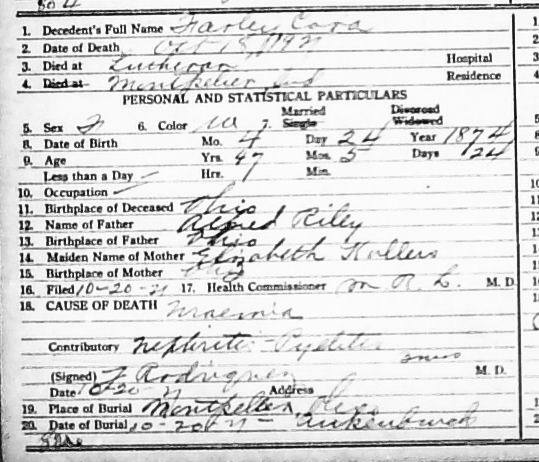 804
1. Decedent's Full Name Farley Cora
2. Date of Death Oct 18, 1921
3. Died at Lutheran Hospital
4. Died at Montpelier Residence
PERSONAL AND STATISTICAL PARTICULARS
Married Divorced
5. Sex F 6. Color W 7. Single Widowed
8. Date of Birth Mo. 4 Day 24 Year 1874
9. Age Yrs. 47 Mos. 5 Days 24
Less than a Day Hrs. Min.
10. Occupation
11. Birthplace of Deceased Ohio
12. Name of Father Alfred Riley
13. Birthplace of Father Ohio
14. Maiden Name of Mother Elizabeth
15. Birthplace of Mother
16. Filed 10-20-21 17. Health Commissioner M. R. L. M. D.
18. CAUSE OF DEATH Uraemia
Contributory Nephritis - Pyelitis
(Signed) F Rodriguez M. D.
Date 10-20-21 Address
19. Place of Burial Montpelier, Ohio
20. Date of Burial 10-20-21